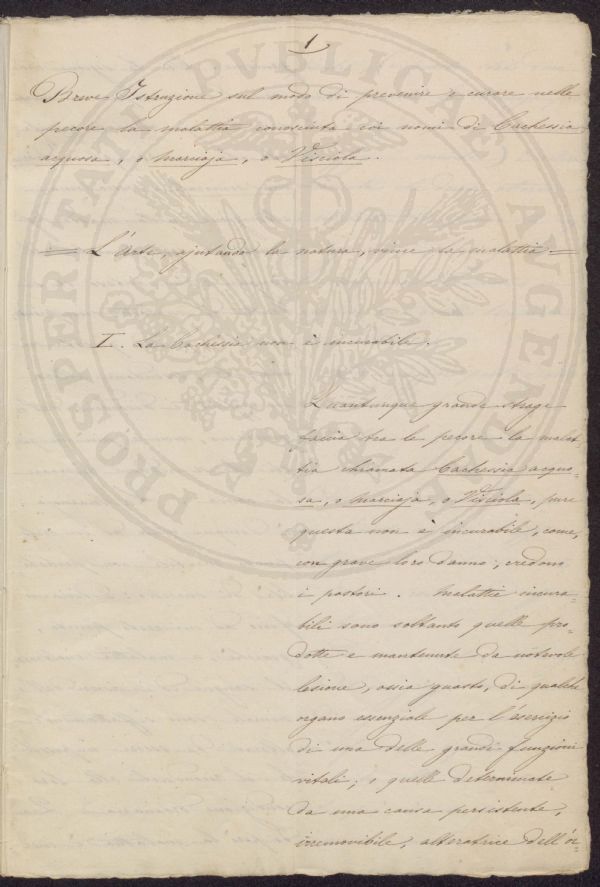 1
Breve Istruzione sul modo di prevenire e curare nelle
pecore la malattia conosciuta coi nomi di Cachessia
acquosa, o Marciaja, o Visciola.
= L'Arte, ajutando la natura, vince la malattia =
I. La Cachessia non è incurabile.
Quantunque grande strage
faccia tra le pecore la malat
tia chiamata Cachessia acquo-
sa, o Marciaja, o Visciola, pure
questa non è incurabile, come,
con grave loro danno, credono
i pastori. Malattie incura-
bili sono soltanto quelle pro-
dotte e mantenute da nótevole
lesione, ossia guasto, di qualche
organo essenziale per l'esercizio
di una delle grandi funzioni
vitali; e quelle determinate
da una causa persistente,
irremovibile, alteratrice dell'or-
PROSPERITATI PVBLICAE AVGENDAE